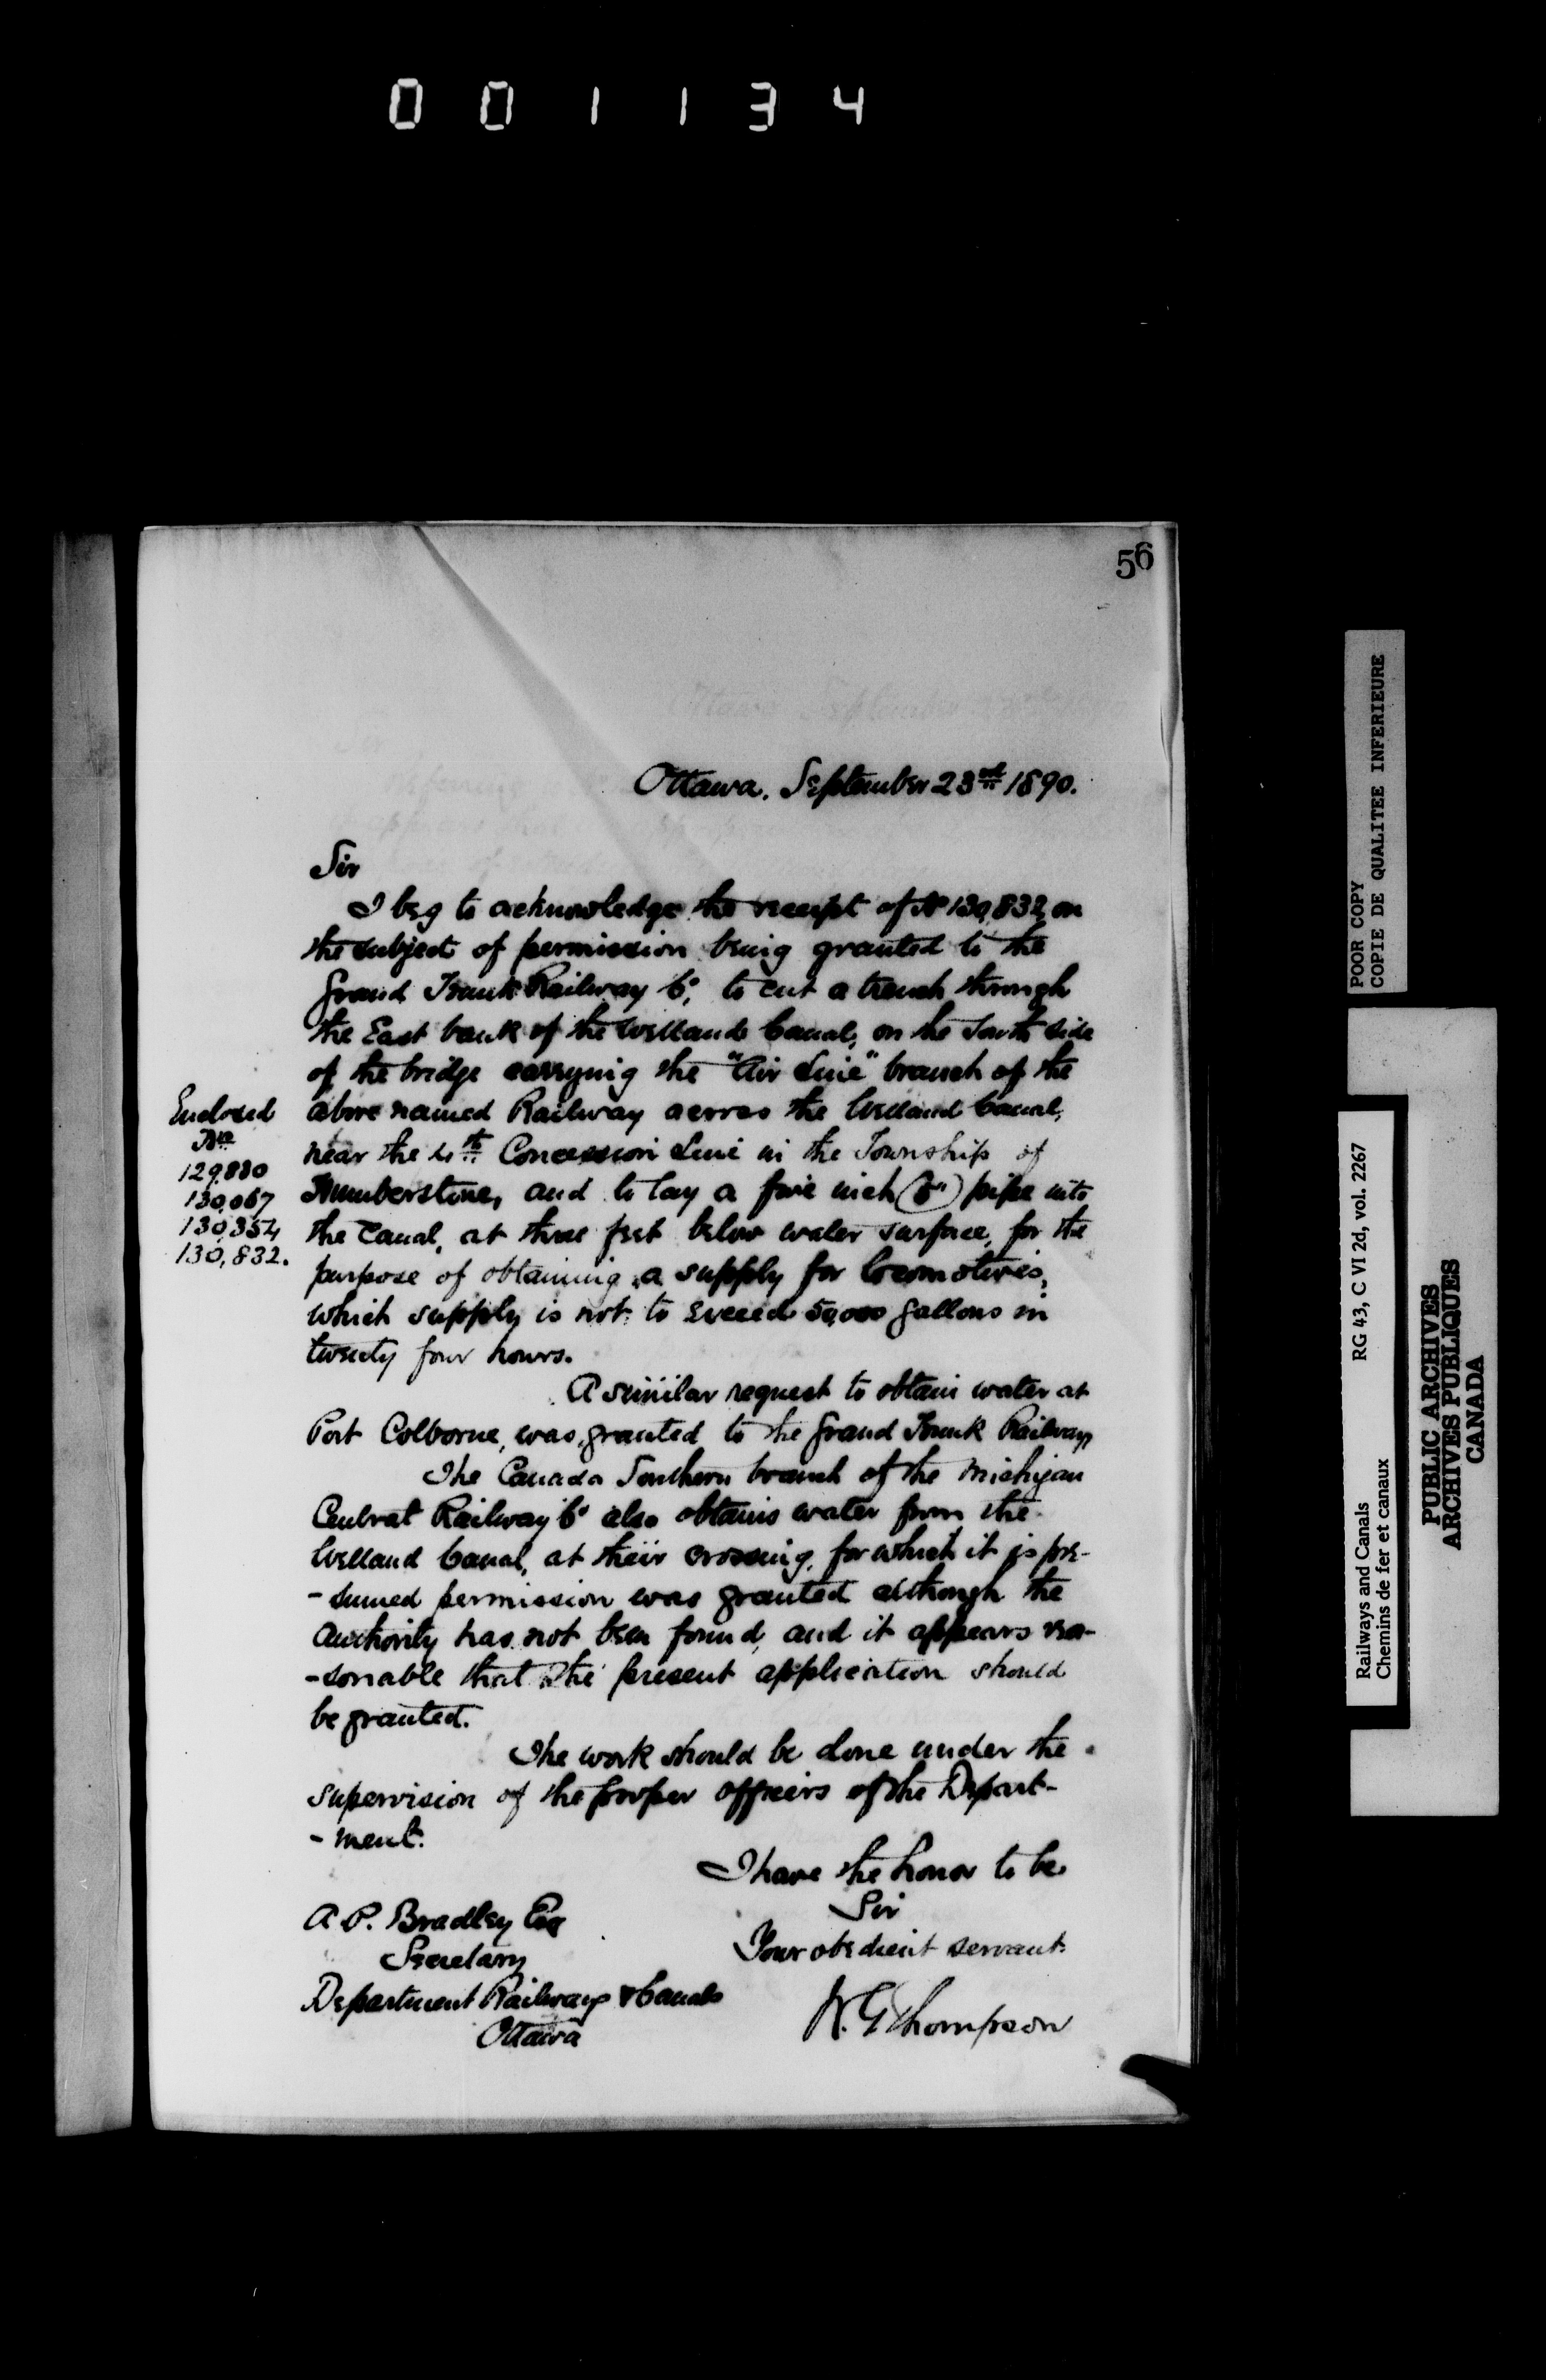 001134
56
Ottawa. September 23rd 1890.
Sir
I beg to acknowledge the receipt of No 130,832, on
the subject of permission being granted to the
Grand Trunk Railway Co, to cut a trench through
the East bank of the Welland Canal, on the South side
of the bridge carrying the "Air Line" branch of the
above named Railway across the Welland Canal,
near the 4th Concession Line in the Township of
Humberstone, and to lay a five inch (5") pipe into
the Canal, at three feet below water surface, for the
purpose of obtaining a supply for locomotives,
which supply is not to exceed 50,000 gallons in
twenty four hours.
Enclosed
Nos
129,880
130,067
130,354
130,832.
A similar request to obtain water at
Port Colborne, was granted to the Grand Trunk Railway
The Canada Southern branch of the Michigan
Central Railway Co also obtains water from the
Welland Canal, at their crossing, for which it is pre-
-sumed permission was granted although the
authority has not been found, and it appears rea-
-sonable that the present application should
be granted.
The work should be done under the
supervision of the proper officers of the Depart-
-ment.
I have the honor to be
Sir
Your obedient servant
A. P. Bradley Esq
Secretary
Department Railways & Canals
Ottawa
Thompson
POOR COPY
COPIE DE QUALITEE INFERIEURE
Railways and Canals RG 43, C VI 2d, vol. 2267
Chemins de fer et canaux
PUBLIC ARCHIVES
ARCHIVES PUBLIQUES
CANADA